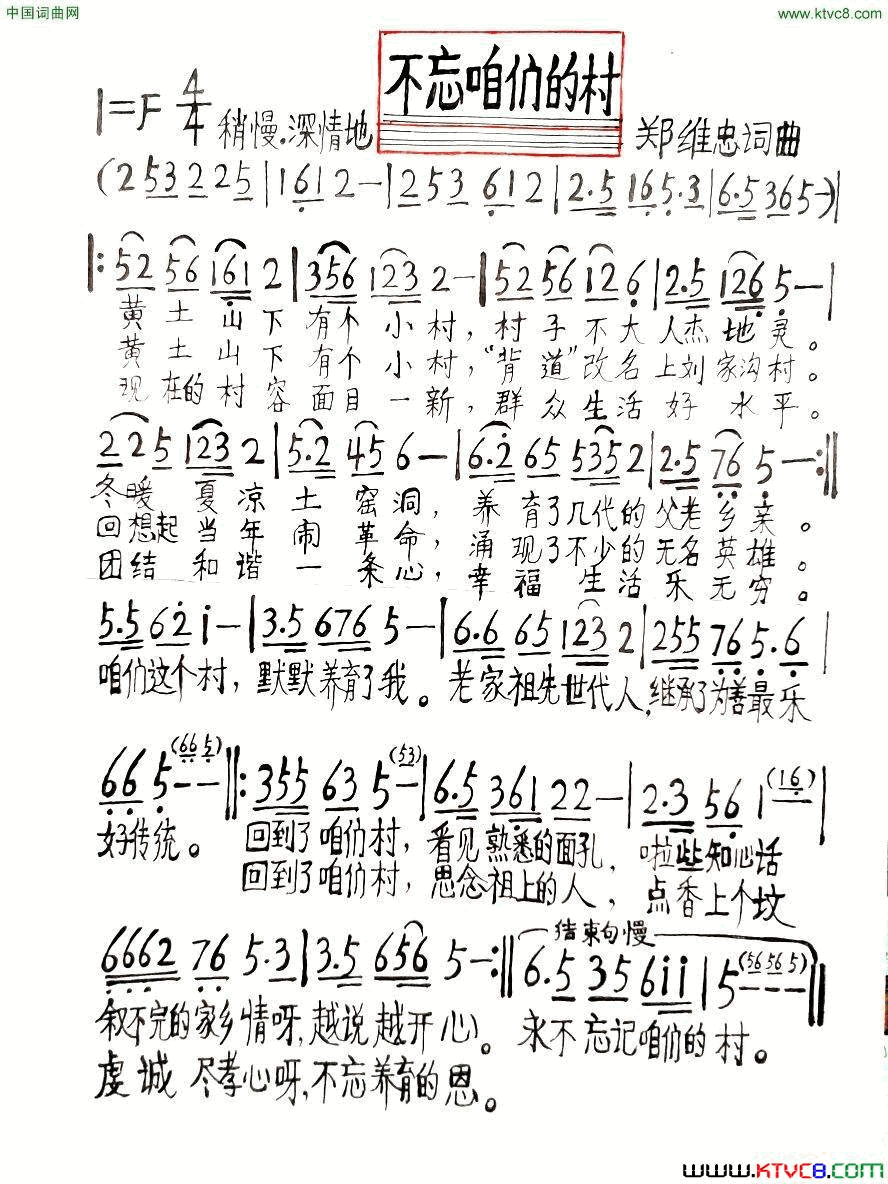 中国词曲网
www.ktvc8.com
不忘咱们的村
1=F 4/4 稍慢.深情地
郑维忠词曲
(2 53 2 25 | 161 2 — | 2 53 612 | 2.5 165.3 | 6.5 365 —) |
|: 52 56 161 2 | 356 123 2 — | 52 56 126 | 2.5 126 5 — |
黄土山下有个小村，村子不大人杰地灵。
黄土山下有个小村，“背道”改名上刘家沟村。
现在的村容面目一新，群众生活好水平。
2 25 123 2 | 5.2 45 6 — | 6.2 65 5352 | 2.5 76 5 — :||
冬暖夏凉土窑洞，养育了几代的父老乡亲。
回想起当年闹革命，涌现了不少的无名英雄。
团结和谐一条心，幸福生活乐无穷。
5.5 62 i — | 3.5 676 5 — | 6.6 65 123 2 | 255 76 5.6 |
咱们这个村，默默养育了我。老家祖先世代人，继承了为善最乐
66 5 (66 5) — — ||: 355 63 5 (53) — | 6.5 361 22 — | 2.3 56 1 (16) — |
好传统。回到了咱们村，看见熟悉的面孔，啦些知心话
回到了咱们村，思念祖上的人，点香上个坟
6662 76 5.3 | 3.5 656 5 — :|| 结束句慢 6.5 35 6ii | 5 (56 56 5) — — — ||
叙不完的家乡情呀，越说越开心。永不忘记咱们的村。
虔诚尽孝心呀，不忘养育的恩。
www.KTVC8.com